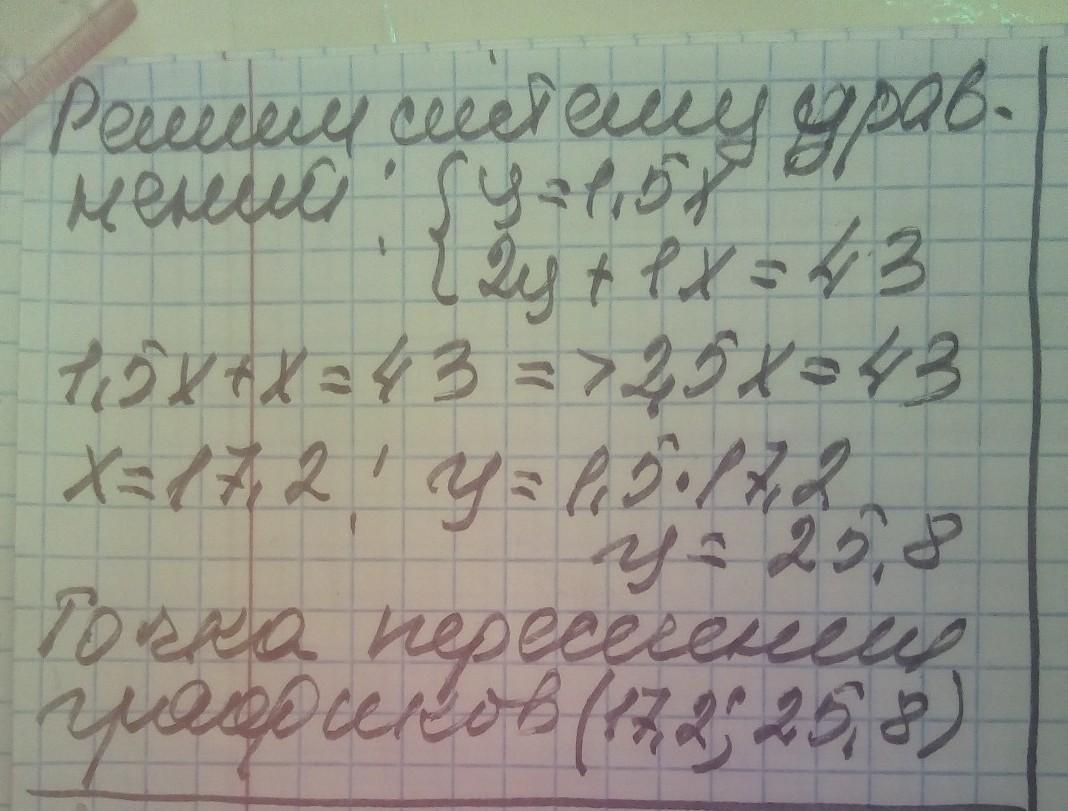 Решим систему урав-
нений: { y=1,5x
2y+1x=43
1,5x+x=43 => 2,5x=43
x=17,2; y=1,5·17,2
y=25,8
Точка пересечения
графиков (17,2; 25,8)